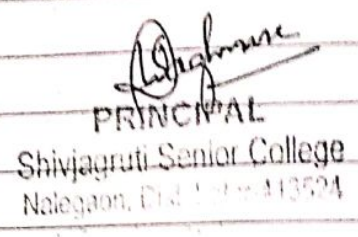 PRINCIPAL
Shivjagruti Senior College
Nalegaon, Dist. Latur-413524